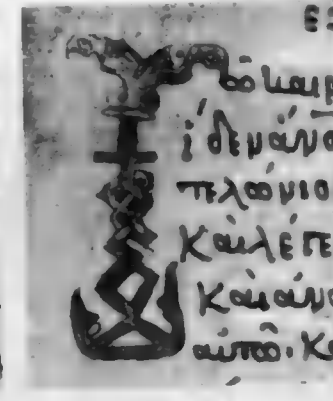 Τῶ καιρ
ἰδεν ἀνο
τελώνιο
Καὶ λέγε
Καὶ ἀνα
αὐτῶ. Κα